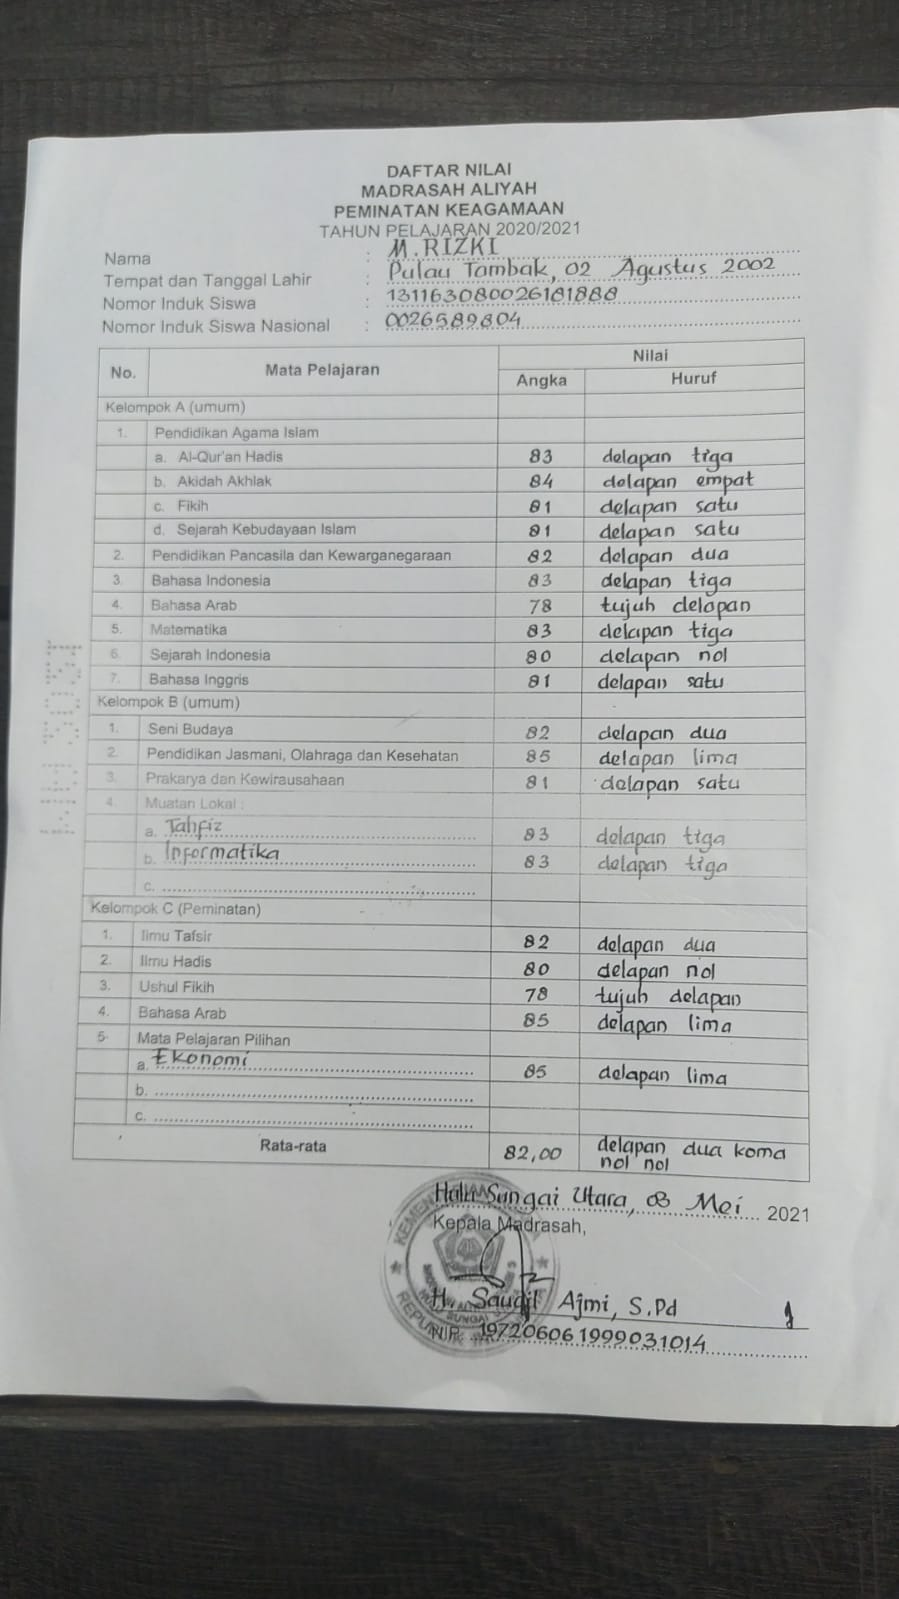 DAFTAR NILAI
MADRASAH ALIYAH
PEMINATAN KEAGAMAAN
TAHUN PELAJARAN 2020/2021
Nama : M. RIZKI
Tempat dan Tanggal Lahir : Pulau Tambak, 02 Agustus 2002
Nomor Induk Siswa : 131163080026181888
Nomor Induk Siswa Nasional : 0026589804
No. Mata Pelajaran Nilai
Angka Huruf
Kelompok A (umum)
1. Pendidikan Agama Islam
a. Al-Qur'an Hadis 83 delapan tiga
b. Akidah Akhlak 84 delapan empat
c. Fikih 81 delapan satu
d. Sejarah Kebudayaan Islam 81 delapan satu
2. Pendidikan Pancasila dan Kewarganegaraan 82 delapan dua
3. Bahasa Indonesia 83 delapan tiga
4. Bahasa Arab 78 tujuh delapan
5. Matematika 83 delapan tiga
6. Sejarah Indonesia 80 delapan nol
7. Bahasa Inggris 81 delapan satu
Kelompok B (umum)
1. Seni Budaya 82 delapan dua
2. Pendidikan Jasmani, Olahraga dan Kesehatan 85 delapan lima
3. Prakarya dan Kewirausahaan 81 delapan satu
4. Muatan Lokal :
a. Tahfiz 83 delapan tiga
b. Informatika 83 delapan tiga
c.
Kelompok C (Peminatan)
1. Ilmu Tafsir 82 delapan dua
2. Ilmu Hadis 80 delapan nol
3. Ushul Fikih 78 tujuh delapan
4. Bahasa Arab 85 delapan lima
5. Mata Pelajaran Pilihan
a. Ekonomi 85 delapan lima
b.
c.
Rata-rata 82,00 delapan dua koma
nol nol
Hulu Sungai Utara, 03 Mei 2021
Kepala Madrasah,
H. Saugil Ajmi, S.Pd
NIP. 197206061999031014